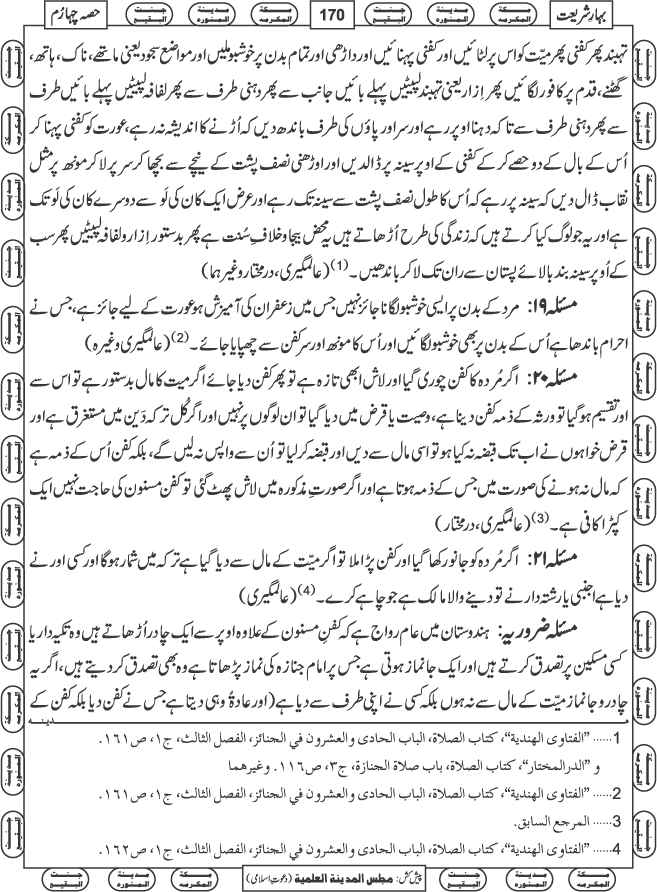 بہارِ شریعت
مكة المكرمه
مدينة المنوره
170
مكة المكرمه
مدينة المنوره
جنت البقيع
حصہ چہارم
تہبند پھر کفنی پھر میّت کو اس پر لٹائیں اور کفنی پہنائیں اور داڑھی اور تمام بدن پر خوشبو ملیں اور مواضع سجود یعنی ماتھے، ناک، ہاتھ،
گھٹنے، قدم پر کافور لگائیں پھر اِزار یعنی تہبند لپیٹیں پہلے بائیں جانب سے پھر دہنی طرف سے پھر لفافہ لپیٹیں پہلے بائیں طرف
سے پھر دہنی طرف سے تاکہ دہنا اوپر رہے اور سر اور پاؤں کی طرف باندھ دیں کہ اُڑنے کا اندیشہ نہ رہے، عورت کو کفنی پہنا کر
اُس کے بال کے دو حصے کر کے کفنی کے اوپر سینہ پر ڈال دیں اور اوڑھنی نصف پشت کے نیچے سے بچھا کر سر پر لا کر مونھ پر مثل
نقاب ڈال دیں کہ سینہ پر رہے کہ اُس کا طول نصف پشت سے سینہ تک رہے اور عرض ایک کان کی لَو سے دوسرے کان کی لَو تک
ہے اور یہ جو لوگ کیا کرتے ہیں کہ زندگی کی طرح اُڑھاتے ہیں یہ محض بیجا و خلافِ سُنت ہے پھر بدستور اِزار و لفافہ لپیٹیں پھر سب
کے اُوپر سینہ بند بالائے پستان سے ران تک لا کر باندھیں۔(1) (عالمگیری، درمختار وغیر ہما)
مسئلہ ۱۹: مرد کے بدن پر ایسی خوشبو لگانا جائز نہیں جس میں زعفران کی آمیزش ہو عورت کے لیے جائز ہے، جس نے
احرام باندھا ہے اُس کے بدن پر بھی خوشبو لگائیں اور اُس کا مونھ اور سر کفن سے چھپایا جائے۔(2) (عالمگیری وغیرہ)
مسئلہ ۲۰: اگر مُردہ کا کفن چوری گیا اور لاش ابھی تازہ ہے تو پھر کفن دیا جائے اگر میت کا مال بدستور ہے تو اس سے
اور تقسیم ہوگیا تو ورثہ کے ذمہ کفن دینا ہے، وصیت یا قرض میں دیا گیا تو ان لوگوں پر نہیں اور اگر کُل ترکہ دَین میں مستغرق ہے اور
قرض خواہوں نے اب تک قبضہ نہ کیا ہو تو اسی مال سے دیں اور قبضہ کر لیا تو اُن سے واپس نہ لیں گے، بلکہ کفن اُس کے ذمہ ہے
کہ مال نہ ہونے کی صورت میں جس کے ذمہ ہوتا ہے اور اگر صورتِ مذکورہ میں لاش پھٹ گئی تو کفن مسنون کی حاجت نہیں ایک
کپڑا کافی ہے۔(3) (عالمگیری، درمختار)
مسئلہ ۲۱: اگر مُردہ کو جانور کھا گیا اور کفن پڑا ملا تو اگر میّت کے مال سے دیا گیا ہے ترکہ میں شمار ہوگا اور کسی اور نے
دیا ہے اجنبی یا رشتہ دار نے تو دینے والا مالک ہے جو چاہے کرے۔(4) (عالمگیری)
مسئلہ ضروریہ: ہندوستان میں عام رواج ہے کہ کفنِ مسنون کے علاوہ اوپر سے ایک چادر اُڑھاتے ہیں وہ تکیہ دار یا
کسی مسکین پر تصدق کرتے ہیں اور ایک جا نماز ہوتی ہے جس پر امام جنازہ کی نماز پڑھاتا ہے وہ بھی تصدق کر دیتے ہیں، اگر یہ
چادر و جا نماز میّت کے مال سے نہ ہوں بلکہ کسی نے اپنی طرف سے دیا ہے (اور عادۃً وہی دیتا ہے جس نے کفن دیا بلکہ کفن کے
مدينه
1...... "الفتاوی الهندية"، كتاب الصلاة، الباب الحادی والعشرون في الجنائز، الفصل الثالث، ج۱، ص۱۶۱.
و "الدرالمختار"، كتاب الصلاة، باب صلاة الجنازة، ج۳، ص۱۱۶. وغيرهما
2...... "الفتاوی الهندية"، كتاب الصلاة، الباب الحادی والعشرون في الجنائز، الفصل الثالث، ج۱، ص۱۶۱.
3...... المرجع السابق.
4...... "الفتاوی الهندية"، كتاب الصلاة، الباب الحادی والعشرون في الجنائز، الفصل الثالث، ج۱، ص۱۶۲.
جنت البقيع
مدينة المنوره
مكة المكرمه
پیش کش: مجلس المدينة العلمية (دعوتِ اسلامی)
مكة المكرمه
مدينة المنوره
جنت البقيع